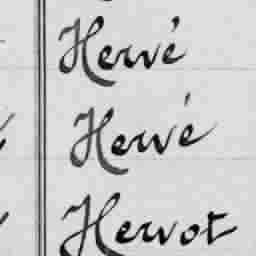 Hervé
Hervé
Hervot